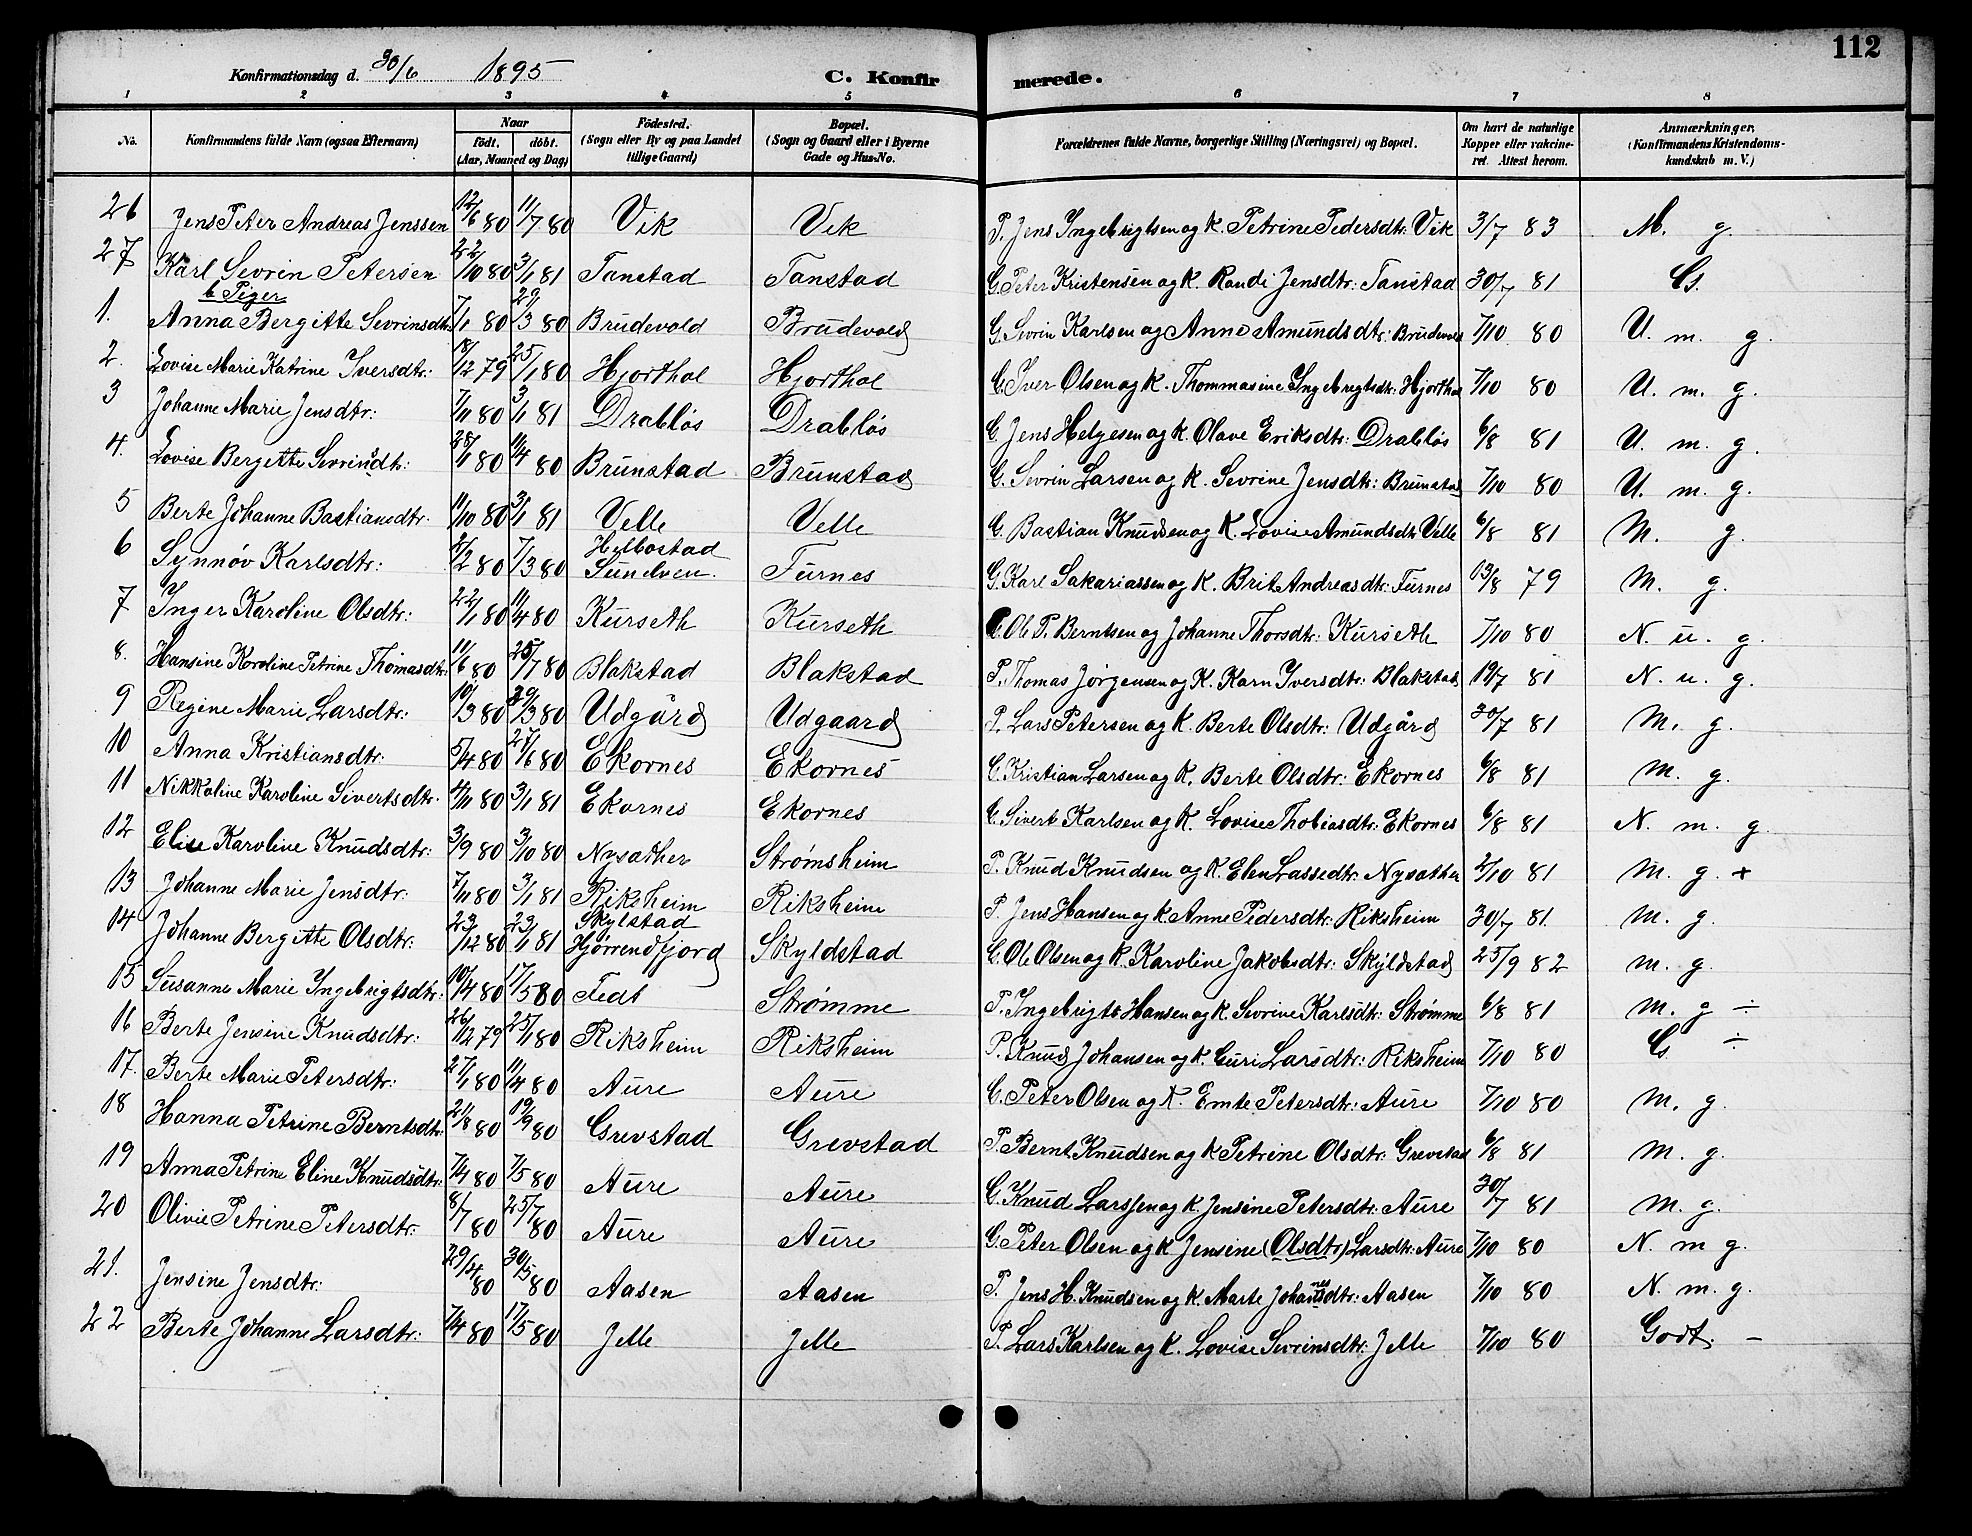 112
Konfirmationsdag d. 30/6 1895 C. Konfirmerede.
1 2 3 4 5 6 7 8
No. Konfirmandens fulde Navn (ogsaa Efternavn) Naar født. døbt. (Aar, Maaned og Dag) Fødested. (Sogn eller By og paa Landet tillige Gaard) Bopæl. (Sogn og Gaard eller i Byerne Gade og Hus-No. Forældrenes fulde Navne, borgerlige Stilling (Næringsvei) og Bopæl. Om havt de naturlige Kopper eller vakcineret. Attest herom. Anmærkninger. (Konfirmandens Kristendomskundskab m. V.)
26 Jens Peter Andreas Jenssen 12/6 80 11/7 80 Vik Vik P. Jens Ingebrigtsen og K. Petrine Pedersdtr: Vik 3/7 83 M. g.
27 Karl Sevrin Petersen 22/10 80 3/1 81 Tanstad Tanstad G. Peter Kristensen og K. Randi Jensdtr: Tanstad 30/7 81 G.
b Piger
1. Anna Bergitte Sevrinsdtr 7/1 80 29/3 80 Brudevold Brudevold G. Sevrin Karlsen og Anne Amundsdtr: Brudevold 7/10 80 U. m. g.
2. Lovise Marie Katrine Iversdtr: 18/12 79 25/1 80 Hjorthol Hjorthol G. Iver Olsen og K. Thommasine Ingebrigtsdtr: Hjorthol 7/10 80 U. m. g.
3 Johanne Marie Jensdtr: 7/11 80 3/1 81 Drabløs Drabløs G. Jens Helgesen og K. Olave Eriksdtr: Drabløs 6/8 81 U. m. g.
4. Lovise Bergette Sevrinsdtr: 28/1 80 11/4 80 Brunstad Brunstad G. Sevrin Larsen og K. Sevrine Jensdtr: Brunstad 7/10 80 U. m. g.
5 Berte Johanne Bastiansdtr. 11/10 80 3/1 81 Velle Velle G. Bastian Knudsen og K. Lovise Amundsdtr Velle 6/8 81 M. g.
6 Synnøv Karlsdtr: /2 80 7/3 80 Helbostad Sunelven. Furnes G. Karl Sakariassen og K. Brit Andreasdtr: Furnes 13/8 79 M. g.
7 Inger Karoline Olsdtr: 22/1 80 11/4 80 Kurseth Kurseth G. Ole P. Berntsen og Johanne Thorsdtr: Kurseth 7/10 80 N. u. g.
8. Hansine Karoline Petrine Thomasdtr: 11/6 80 25/7 80 Blakstad Blakstad P. Thomas Jørgensen og K. Karn Iversdtr: Blakstad 19/7 81 N. u. g.
9 Regine Marie Larsdtr: 10/3 80 29/3 80 Udgård Udgaard P. Lars Petersen og K. Berte Olsdtr: Udgård 30/7 81 M. g.
10 Anna Kristiansdtr: 5/4 80 27/6 80 Ekornes Ekornes G. Kristian Larsen og K. Berte Olsdtr: Ekornes 6/8 81 M. g.
11 Nikkoline Karoline Sivertsdtr. 4/11 80 3/1 81 Ekornes Ekornes G. Sivert Karlsen og K. Lovise Thobiasdtr: Ekornes 6/8 81 N. m. g.
12 Elise Karoline Knudsdtr: 3/9 80 3/10 80 Nysæther Strømsheim P. Knud Knudsen og K. Elen Lassedtr: Nysæther 2/10 81 M. g. +
13 Johanne Marie Jensdtr: 7/11 80 3/1 81 Riksheim Riksheim P. Jens Hansen og K. Anne Pedersdtr: Riksheim 30/7 81. M. g.
14 Johanne Bergitte Olsdtr: 23/12 80 23/1 81 Skylstad Hjørrendfjord Skyldstad G. Ole Olsen og K. Karoline Jakobsdtr: Skyldstad 25/9 82 M. g.
15 Susanne Marie Ingebrigtsdtr: 10/4 80 17/5 80 Fedt Strømme P. Ingebrigt Hansen og K. Sevrine Karlsdtr: Strømme 6/8 81 M. g ÷
16 Berte Jensine Knudsdtr: 26/12 79 25/1 80 Riksheim Riksheim P. Knud Johansen og K. Guri Larsdtr: Riksheim 7/10 80 G. ÷
17. Berte Marie Petersdtr: 27/1 80 11/4 80 Aure Aure G. Peter Olsen og K. Emte Petersdtr: Aure 7/10 80 M. g.
18 Hanna Petrine Berntsdtr: 21/8 80 19/9 80 Grevstad Grevstad P. Bernt Knudsen og K Petrine Olsdtr: Grevstad 6/8 81 M. g.
19 Anna Petrine Eline Knudsdtr: 7/4 80 7/5 80 Aure Aure G. Knud Larssen og K. Jensine Petersdtr: Aure 30/7 81 M. g.
20 Olivie Petrine Petersdtr: 8/7 80 25/7 80 Aure Aure G. Peter Olsen og K Jensine (Olsdtr) Larsdtr: Aure 7/10 80 N. m g.
21. Jensine Jensdtr: 29/4 80 30/5 80 Aasen Aasen P. Jens H. Knudsen og K. Marte Johannesdtr: Aasen 7/10 80 N. m. g.
22 Berte Johanne Larsdtr: 7/4 80 17/5 80 Jelle Jelle P. Lars Karlsen og K. Lovise Sevrinsdtr. Jelle 7/10 80 Godt. –